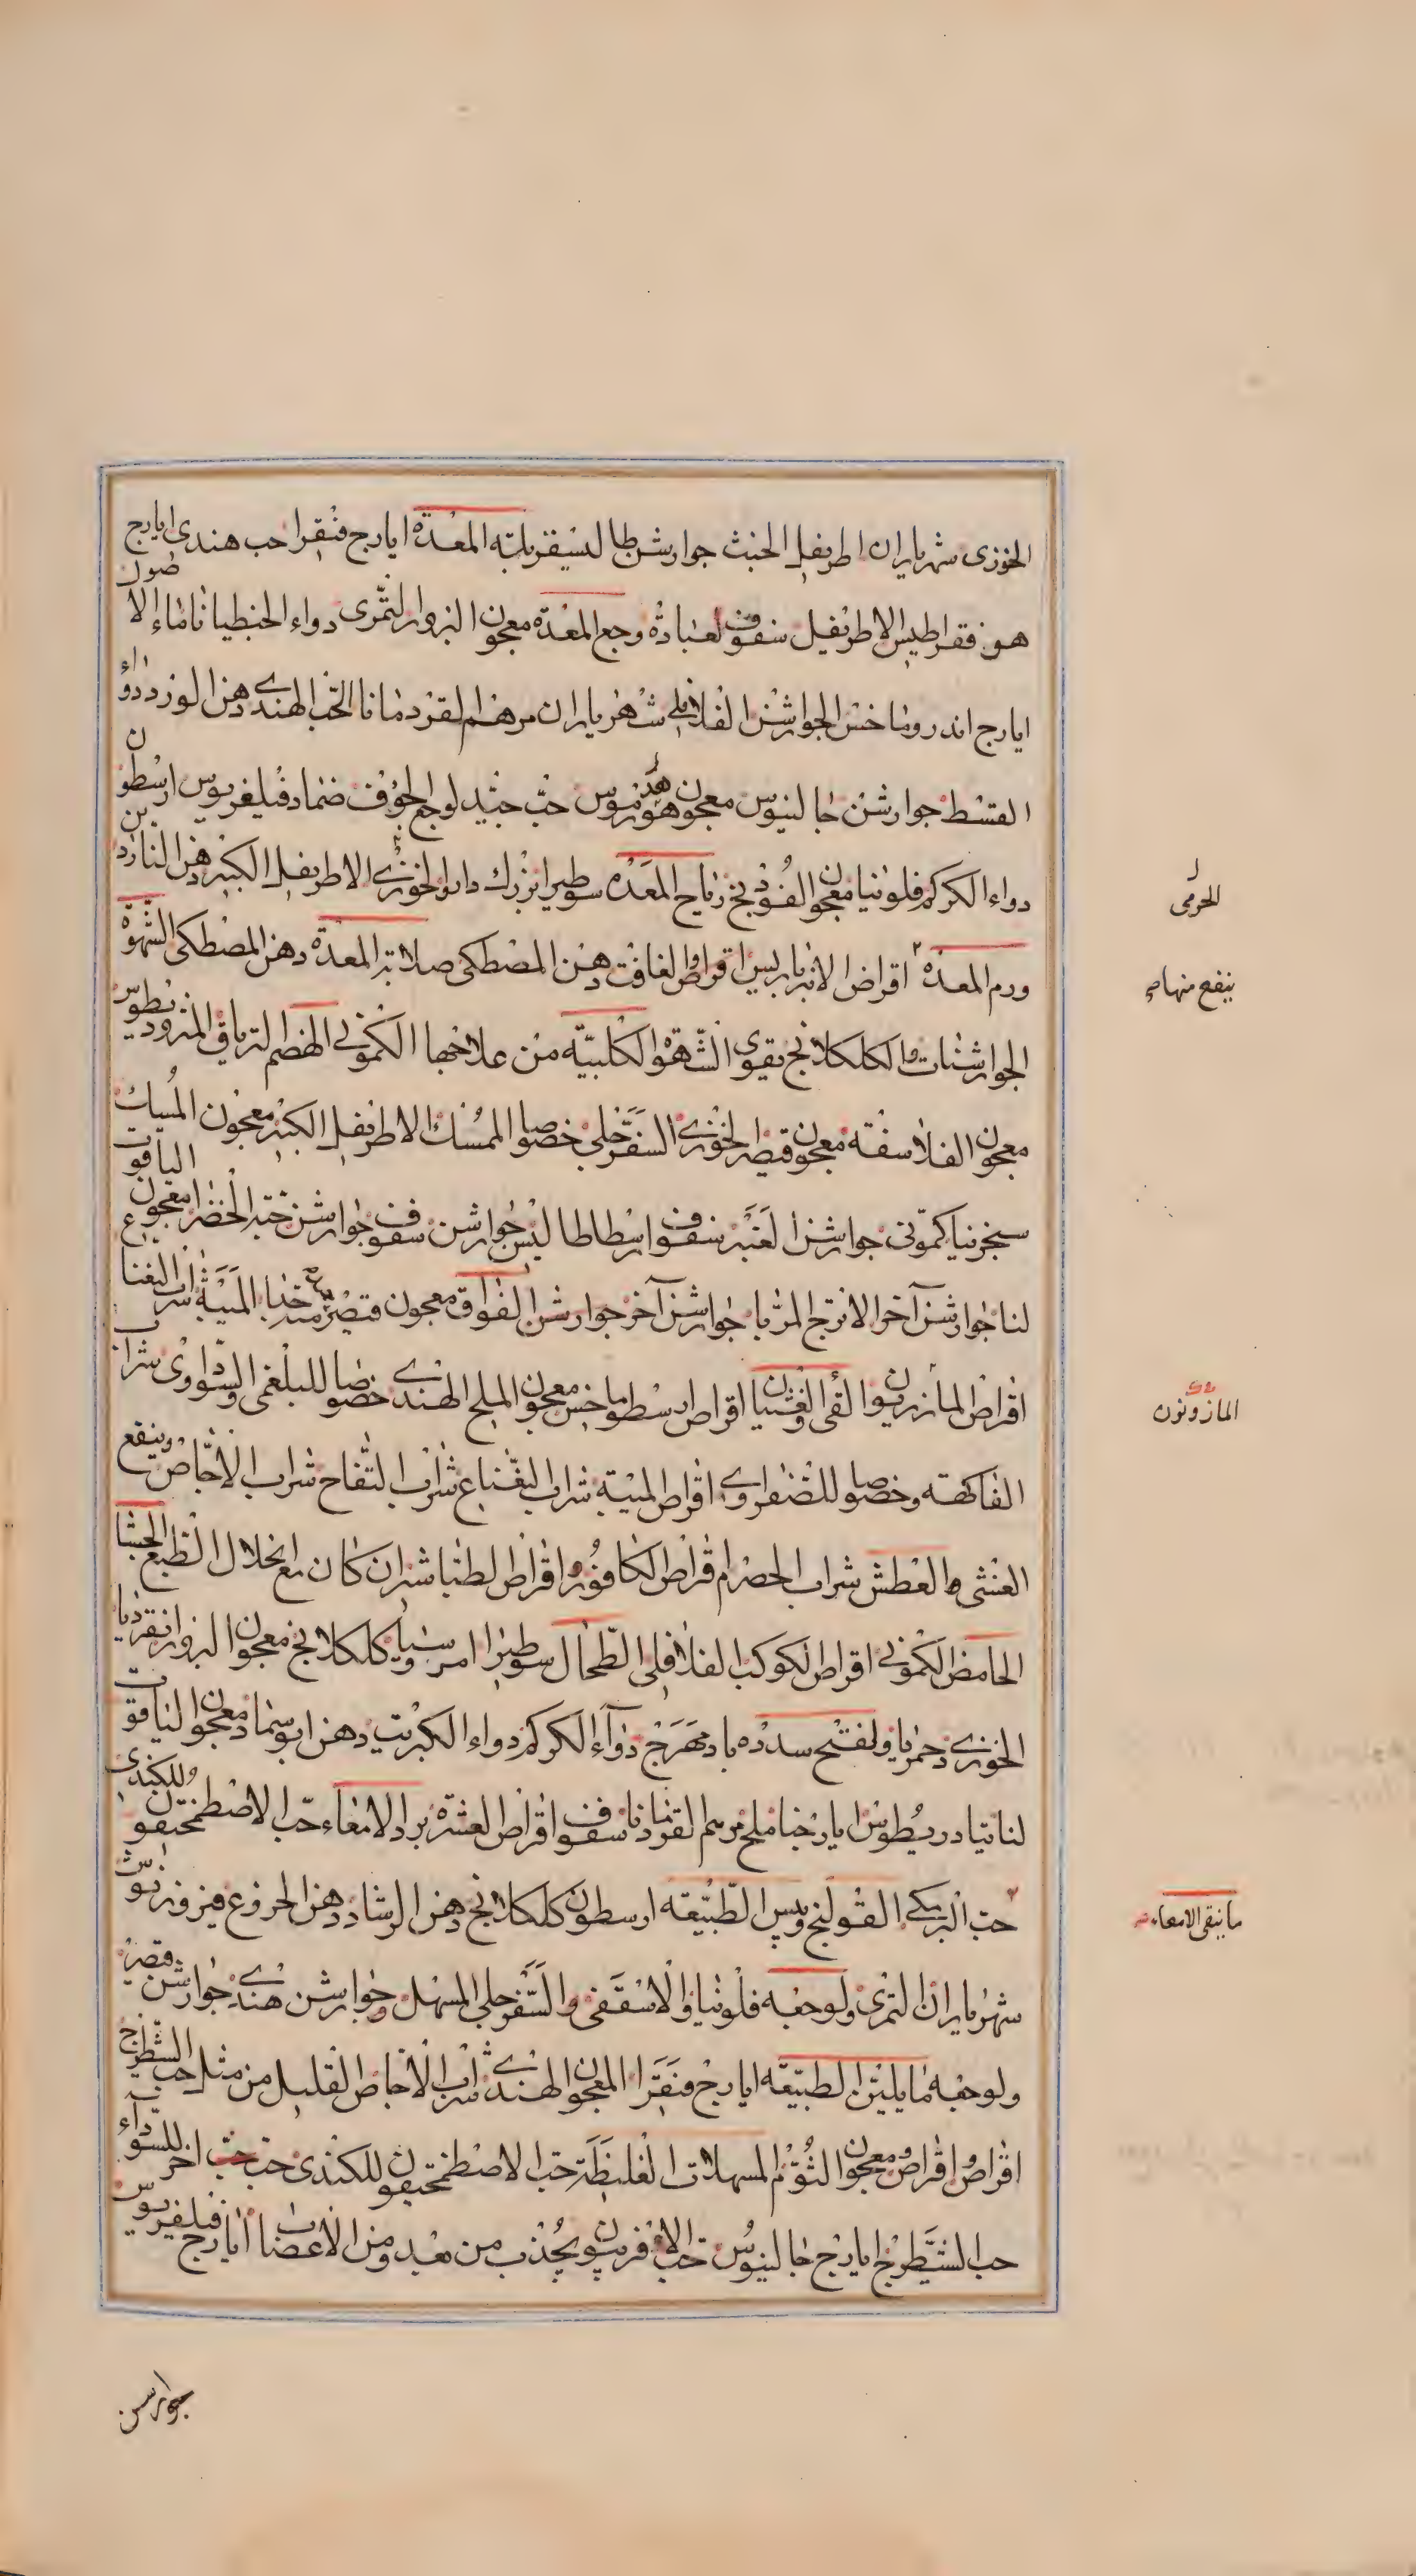 الخوزى شهرياران اطريفل الخبث جوارشن طاليسقر بلة المعدة ايارج فيقرا حب هندى ايارج
هو فقراطيس الاطريفل سفوف لعبادة وجع المعدة معجون البزور التمرى دواء الجنطيانا ماء الاصول
ايارج اندروماخس الجوارشن الفلافلى شهرياران مرهم القردمانا الحب الهندى دهن اللوز دواء
القسط جوارشن جالينوس معجون هرمس حب جيد لوجع الجوف ضماد فيلغريوس ارسطون
دواء الكركم فلونيا معجون الفودنج رياح المعدة سوطيرا بزرك دارو الخوزى الاطريفل الكبير دهن الناردين
ورم المعدة اقراص الانبرباريس اقراص الغافت دهن المصطكى صلابة المعدة دهن المصطكى الشهوة
الجوارشنات والكلكلانج يقوى الشهوة الكلبية من علاجها الكمونى الهضم الترياق المثروديطوس
معجون الفلاسفة معجون قيصر الخوزى السفرجلى خصوصا الممسك الاطريفل الكبير معجون المسك
سجزنيا كمونى جوارشن العنبر سفوف ارسطاطاليس جوارشن سفوف جوارشن حبة الخضرا معجون الياقوت
لنا جوارشن آخر الاترج المربا جوارشن آخر جوارشن الفواق معجون قيصر الميبة شراب النعناع
اقراص المازريون القئ والغثيان اقراص ارسطوماخس معجون الملح الهندى خصوصا للبلغمى والسوداوى شراب
الفاكهة وخصوصا للصفراوى اقراص الميبة شراب النعناع شراب التفاح شراب الاجاص وينفع
الغثى والعطش شراب الحصرم اقراص الكافور اقراص الطباشير ان كان مع انحلال الطبع الجشا
الحامض الكمونى اقراص الكوكب الفلافلى الطحال سوطيرا امروسيا كلكلانج معجون البزور انقرديا
الخوزى دحمرتا ولفتح سدده بادمهرج دواء الكركم دواء الكبريت دهن ابو سماد معجون الياقوت
لنا تيادريطوس ايارجنا ملح مرهم القردمانا سفوف اقراص العشرة برد الامعاء حب الاصطمخيقون للكندى
حب البرمكى القولنج ويبس الطبيعة ارسطون كلكلانج دهن الرشاد دهن الخروع فيروزنوش
شهرياران التمرى ولوجعه فلونيا والاسقفى والسفرجلى المسهل وجوارشن هندى جوارشن قيصر
ولوجعه مما يلين الطبيعة ايارج فيقرا المعجون الهندى شراب الاجاص القليل من مثل حب الشيطرج
اقراص واقراص ومعجون الثوم المسهلات الغليظة حب الاصطمخيقون للكندى حب حب آخر للسوداء
حب الشيطرج ايارج جالينوس حب الافربيون يجذب من بعد ومن الاعصاب ايارج فيلغريوس
الحرمى
ينفع منها
المازونون
ما ينقى الامعاء
جوارشن